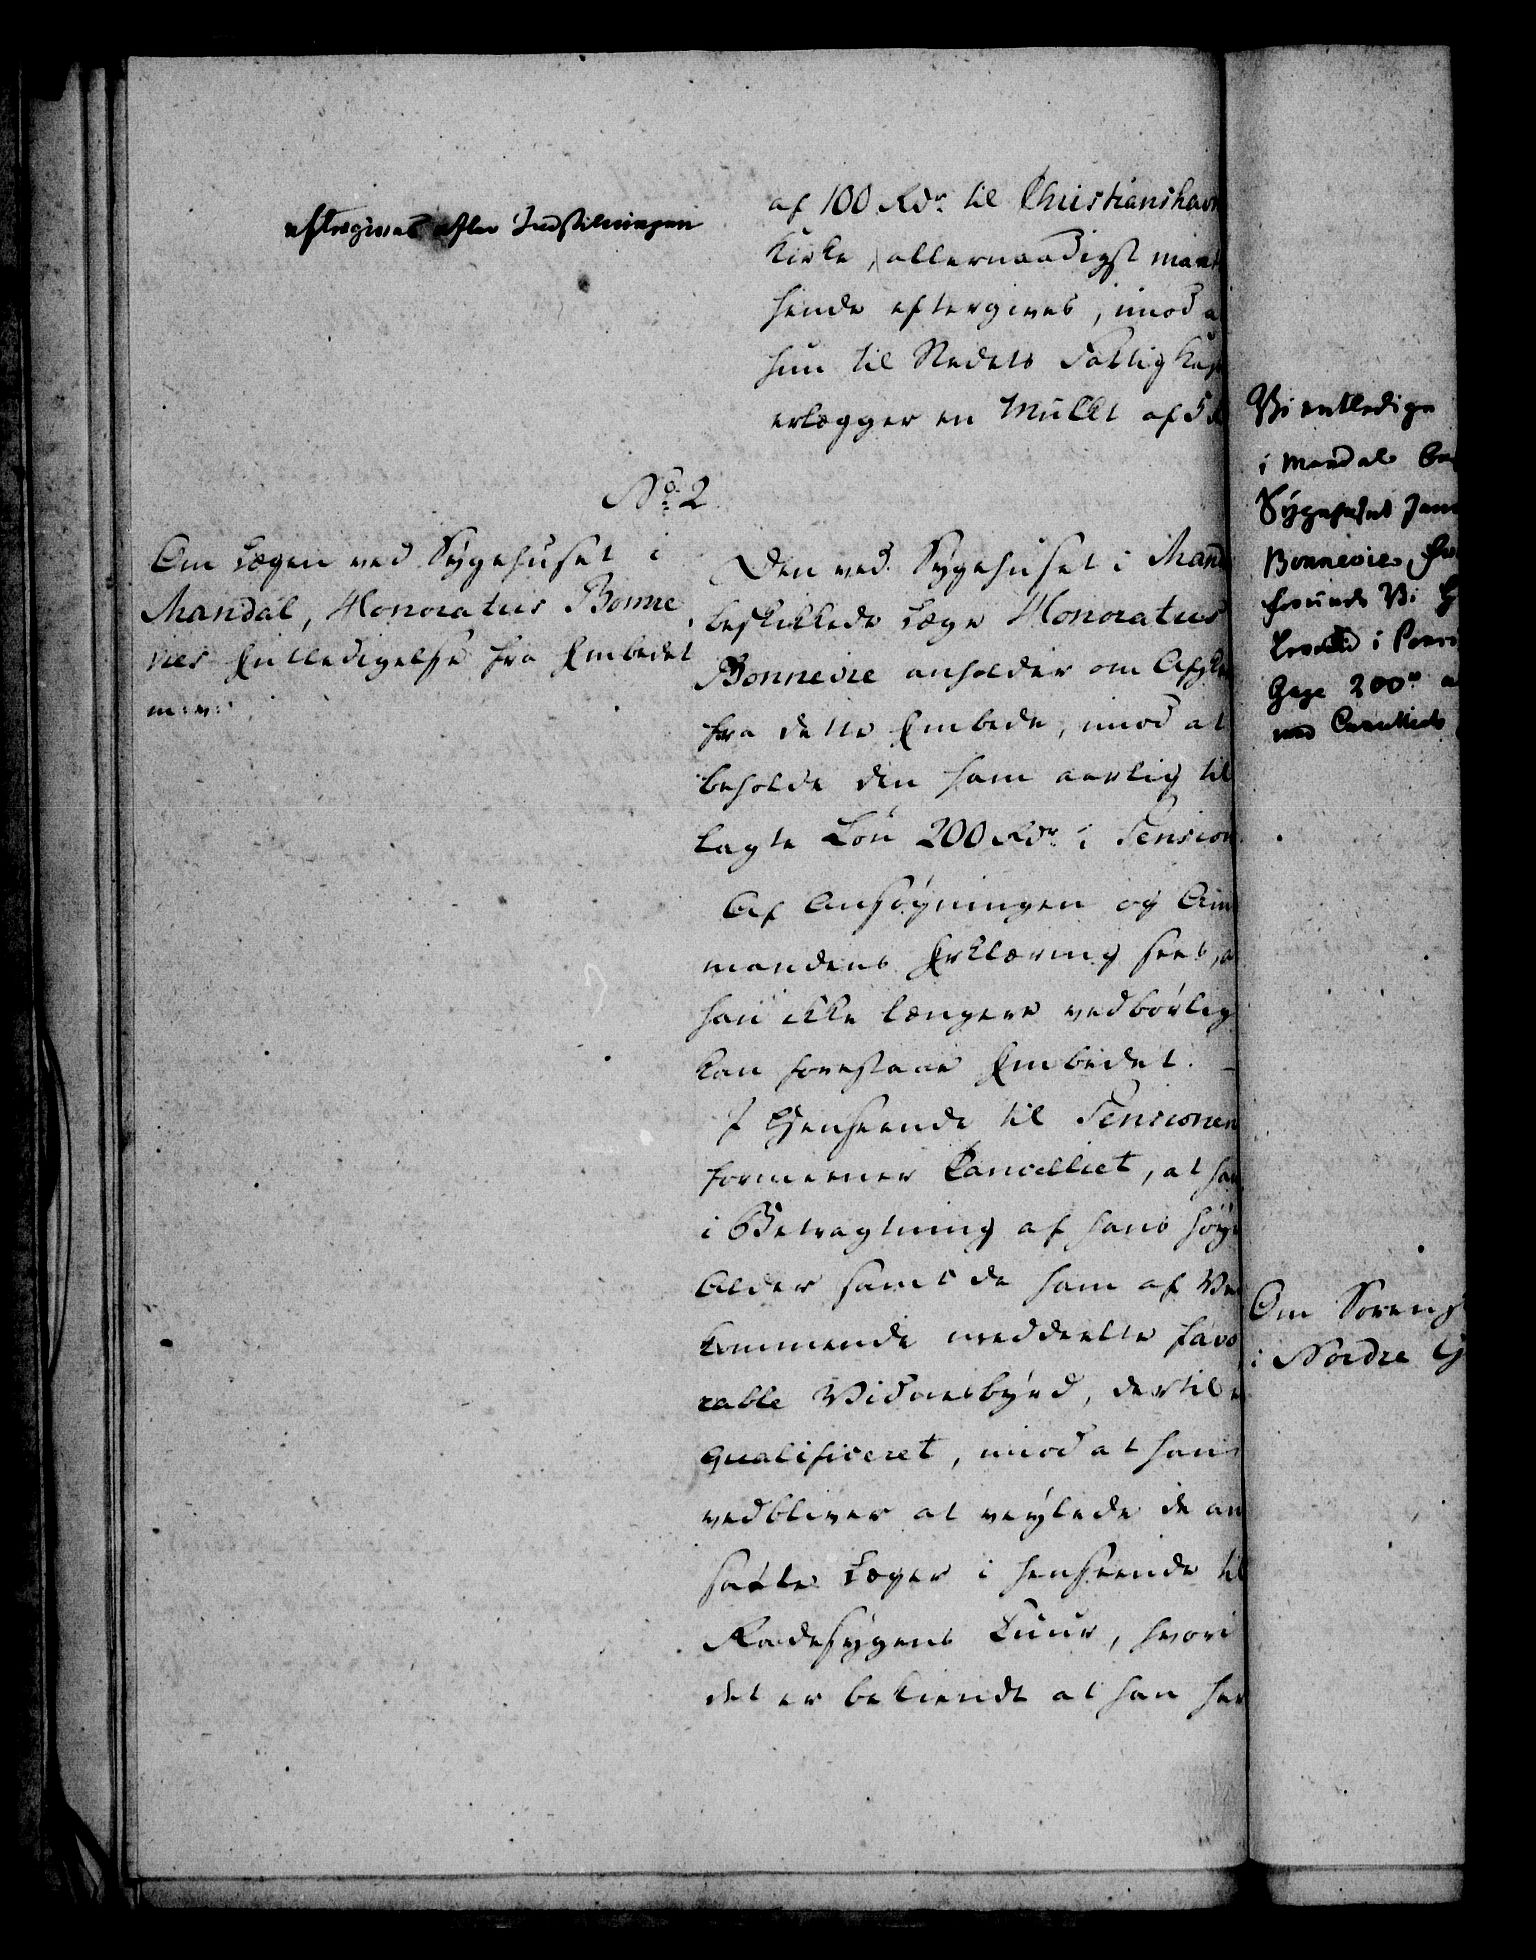 eftergives efter Indstilningen
af 100 Rdr. til Christianshavn
Kirke, allernaadigst maat
hende eftergives, imod a
hun til Stedets Fattig Kas
erlægger en Mulkt af 5 R
No. 2
Om Lægen ved Sygehuset i
Mandal, Honoratus Bonne
vies Entledigelse fra Embedet
m: v:
Den ved Sygehuset i Mand
beskikkede Læge Honoratus
Bonnevie anholder om Afske
fra dette Embede, imod at
beholde den ham aarlig til
lagte Løn 200 Rdr. i Pension
Af Ansøgningen og Amt
mandens Erklæring sees, a
han ikke længere vedbørlig
kan forestaae Embedet. –
I Henseende til Pensionen
formeener Cancelliet, at han
i Betragtning af hans høye
Alder samt de ham af Ved
kommende meddeelte favo
rable Vidnesbyrd, dertil e
qualificeret, imod at han
vedbliver at veylede de an
satte Læger i Henseende til
Radesygens Cuur, hvori
det er bekiendt at han har
Vi entledige
i Mandal
Sygehuset
Bonnevie,
Vi
i
Gage 200
Om Sorens
i Nordre G